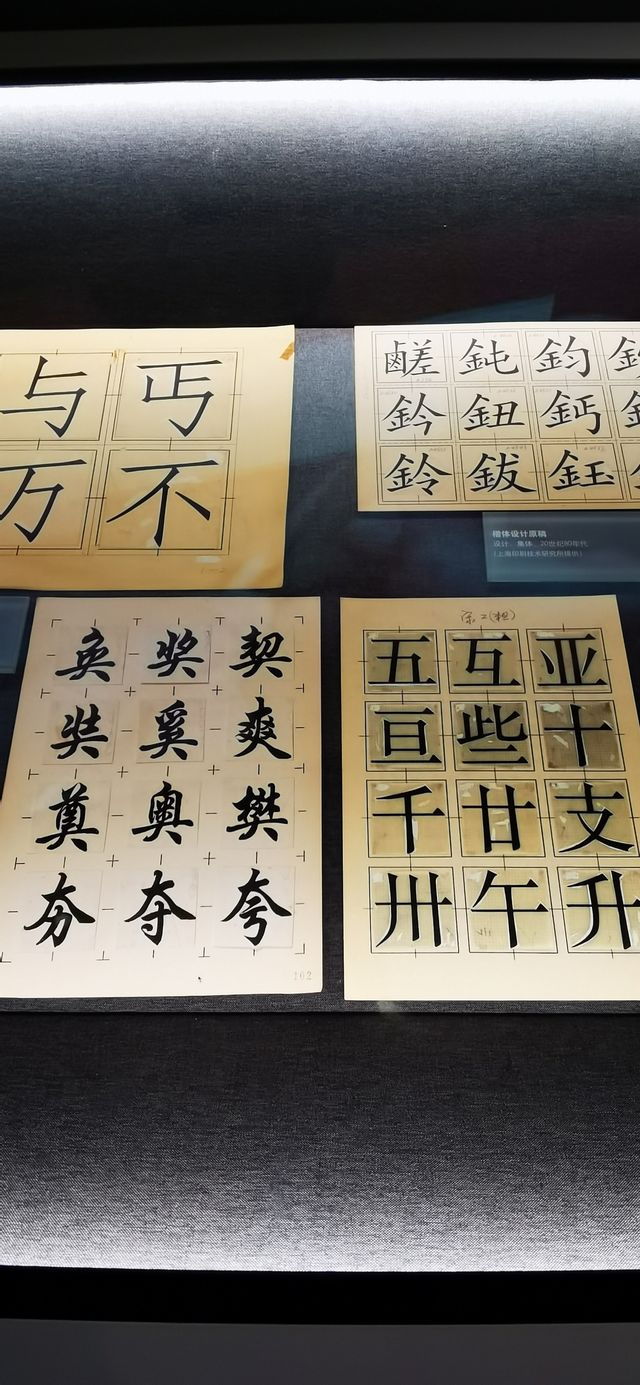 与丏
万不
鹺鈍鈞
鈐鈕鈣
鈴鈸鈺
楷体设计原稿
设计 集体 20世纪80年代
(上海印刷技术研究所提供)
奂奖契
奘奚爽
奠奥樊
夯夺夸
102
宋二(粗)
五互亚
亘些十
千廿支
卅午升